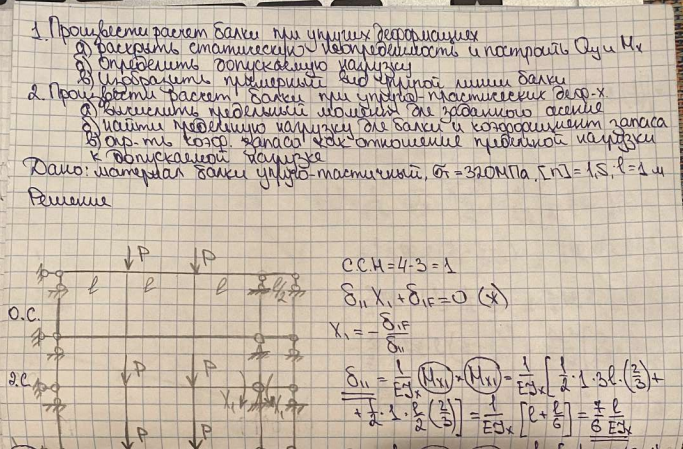 1. Произвести расчет балки при упругих деформациях
а) раскрыть статическую неопределимость и построить Qy и Mx
б) определить допускаемую нагрузку
в) изобразить примерный вид упругой линии балки
2. Произвести расчет балки при упруго-пластических деф-х.
а) вычислить предельный момент для заданного сечения
б) найти предельную нагрузку для балки и коэффициент запаса
в) опр-ть коэф. запаса как отношение предельной нагрузки
к допускаемой нагрузке
Дано: материал балки упруго-пластичный, σт = 320 МПа, [n] = 1,5, l = 1 м
Решение
P P
l l l l/2
С.С.Н = 4-3 = 1
δ11 X1 + δ1F = 0 (*)
О.С.
X1 = - δ1F/δ11
Э.С. P P X1
δ11 = 1/EJx (Mx1) × (Mx1) = 1/EJx [1/2 · 1 · 3l · (2/3) +
+ 1/2 · 1 · l/2 (2/3)] = 1/EJx [l + l/6] = 7/6 l/EJx
P P